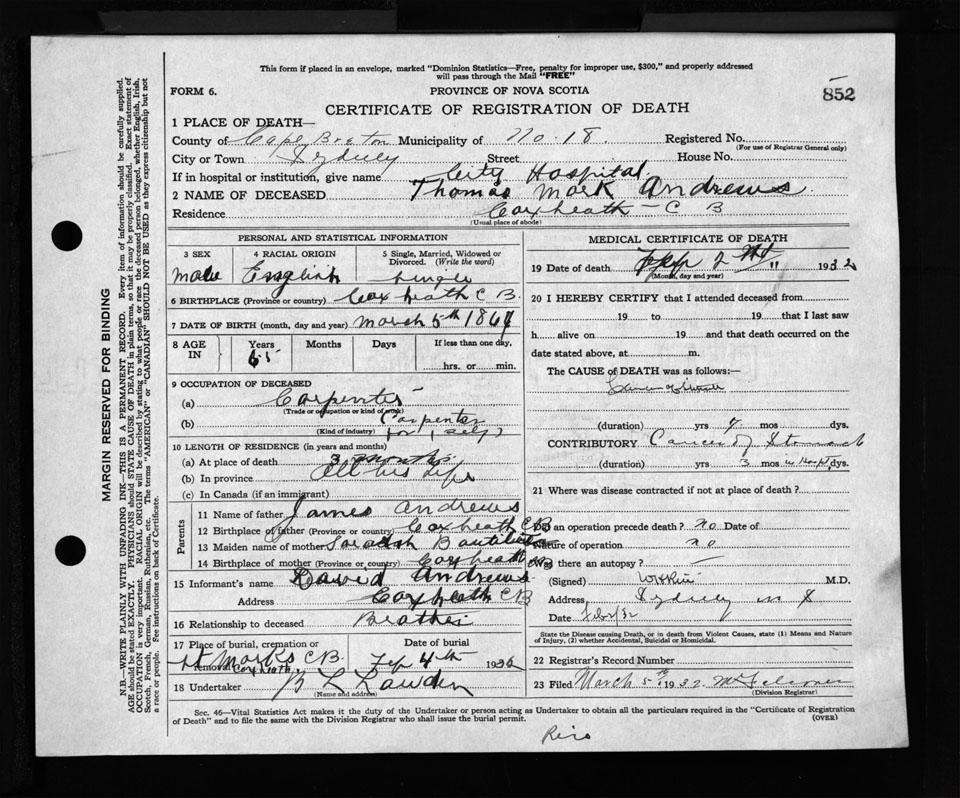 This form if placed in an envelope, marked "Dominion Statistics—Free, penalty for improper use, $300," and properly addressed
will pass through the Mail "FREE"
FORM 6.
PROVINCE OF NOVA SCOTIA
852
CERTIFICATE OF REGISTRATION OF DEATH
1 PLACE OF DEATH—
County of Cape Breton Municipality of No. 18. Registered No.
(For use of Registrar General only)
City or Town Sydney Street House No.
If in hospital or institution, give name City Hospital
2 NAME OF DECEASED Thomas Mark Andrews
Residence Coxheath – C B
(Usual place of abode)
PERSONAL AND STATISTICAL INFORMATION
3 SEX 4 RACIAL ORIGIN 5 Single, Married, Widowed or
Divorced. (Write the word)
Male English Single
6 BIRTHPLACE (Province or country) Coxheath C B.
7 DATE OF BIRTH (month, day and year) March 5th 1867
8 AGE IN Years Months Days If less than one day,
65 hrs. or min.
9 OCCUPATION OF DECEASED
(a) Carpenter
(Trade or occupation or kind of work)
(b) Carpenter
(Kind of industry) for self
10 LENGTH OF RESIDENCE (in years and months)
(a) At place of death 3 months.
(b) In province All his life
(c) In Canada (if an immigrant)
Parents
11 Name of father James Andrews
12 Birthplace of father (Province or country) Coxheath CB
13 Maiden name of mother
14 Birthplace of mother (Province or country) Coxheath CB
15 Informant's name David Andrews
Address Coxheath CB
16 Relationship to deceased Brother
17 Place of burial, cremation or Date of burial
St Marks C B. 4th 193
18 Undertaker B L
(Name and address)
MEDICAL CERTIFICATE OF DEATH
19 Date of death 1932
(Month, day and year)
20 I HEREBY CERTIFY that I attended deceased from
19 to 19 that I last saw
h alive on 19 and that death occurred on the
date stated above, at m.
The CAUSE OF DEATH was as follows:—
(duration) yrs 7 mos dys.
CONTRIBUTORY Cancer of Stomach
(duration) yrs 3 mos in Hospt. dys.
21 Where was disease contracted if not at place of death?
Did an operation precede death? no Date of
Nature of operation no
Was there an autopsy?
(Signed) M.D.
Address Sydney N S
Date
State the Disease causing Death, or in death from Violent Causes, state (1) Means and Nature
of Injury, (2) whether Accidental, Suicidal or Homicidal.
22 Registrar's Record Number
23 Filed March 5th 1932
(Division Registrar)
Sec. 46—Vital Statistics Act makes it the duty of Undertaker or person acting as Undertaker to obtain all the particulars required in the "Certificate of Registration
of Death" and to file the same with the Division Registrar who shall issue the burial permit.
(OVER)
MARGIN RESERVED FOR BINDING
N.B.—WRITE PLAINLY WITH UNFADING INK—THIS IS A PERMANENT RECORD. Every item of information should be carefully supplied.
AGE should be stated EXACTLY. PHYSICIANS should STATE CAUSE OF DEATH in plain terms, so that it may be properly classified. Exact statement of
OCCUPATION is very important. RACIAL ORIGIN will be described by stating to what people or race the deceased person belonged, whether English, Irish,
Scotch, French, German, Russian, Ruthenian, etc. The terms "AMERICAN" or "CANADIAN" SHOULD NOT BE USED as they express citizenship but not
a race or people. See instructions on back of Certificate.